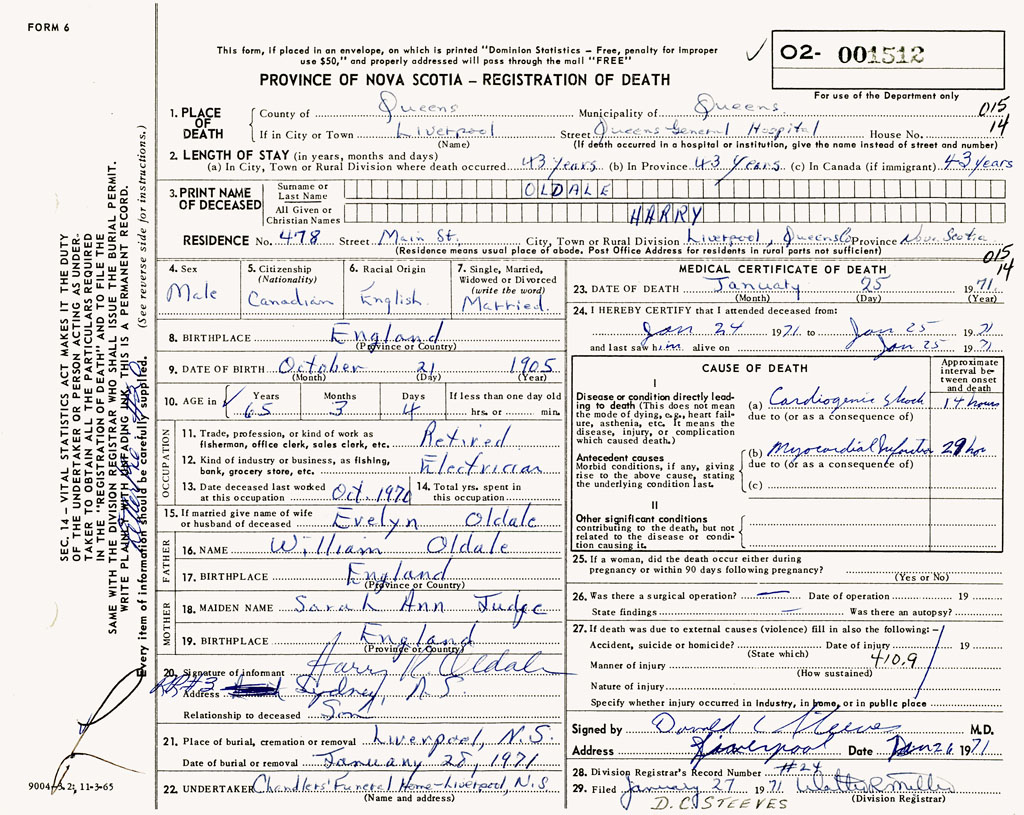 FORM 6
This form, if placed in an envelope, on which is printed "Dominion Statistics – Free, penalty for improper
use $50," and properly addressed will pass through the mail "FREE"
PROVINCE OF NOVA SCOTIA – REGISTRATION OF DEATH
✓ 02- 001512
For use of the Department only
015
14
1. PLACE OF DEATH
County of Queens Municipality of Queens
If in City or Town Liverpool Street Queens General Hospital House No.
(Name) (If death occurred in a hospital or institution, give the name instead of street and number)
2. LENGTH OF STAY (in years, months and days)
(a) In City, Town or Rural Division where death occurred 43 years (b) In Province 43 years (c) In Canada (if immigrant) 43 years
3. PRINT NAME OF DECEASED
Surname or Last Name OLDALE
All Given or Christian Names HARRY
RESIDENCE No. 478 Street Main St. City, Town or Rural Division Liverpool, Queens Co Province Nova Scotia
(Residence means usual place of abode. Post Office Address for residents in rural parts not sufficient)
015
14
4. Sex Male
5. Citizenship (Nationality) Canadian
6. Racial Origin English
7. Single, Married, Widowed or Divorced (write the word) Married
8. BIRTHPLACE England
(Province or Country)
9. DATE OF BIRTH October 21 1905
(Month) (Day) (Year)
10. AGE in ✓ Years 65 Months 3 Days 4 If less than one day old
hrs. or min.
OCCUPATION
11. Trade, profession, or kind of work as fisherman, office clerk, sales clerk, etc. Retired
12. Kind of industry or business, as fishing, bank, grocery store, etc. Electrician
13. Date deceased last worked at this occupation Oct. 1970
14. Total yrs. spent in this occupation
15. If married give name of wife or husband of deceased Evelyn Oldale
FATHER
16. NAME William Oldale
17. BIRTHPLACE England
(Province or Country)
MOTHER
18. MAIDEN NAME Sarah Ann Judge
19. BIRTHPLACE England
(Province or Country)
20. Signature of informant Harry R Oldale
Address RR#3 Sydney, N.S.
Relationship to deceased Son
21. Place of burial, cremation or removal Liverpool, N.S.
Date of burial or removal January 28, 1971
22. UNDERTAKER Chandlers' Funeral Home-Liverpool, N.S
(Name and address)
MEDICAL CERTIFICATE OF DEATH
23. DATE OF DEATH January 25 1971.
(Month) (Day) (Year)
24. I HEREBY CERTIFY that I attended deceased from:
Jan 24 1971 to Jan 25 1971
and last saw him alive on Jan 25 1971
CAUSE OF DEATH
Approximate interval between onset and death
I
Disease or condition directly leading to death (This does not mean the mode of dying, e.g., heart failure, asthenia, etc. It means the disease, injury, or complication which caused death.)
(a) Cardiogenic Shock 14 hours
due to (or as a consequence of)
Antecedent causes
Morbid conditions, if any, giving rise to the above cause, stating the underlying condition last.
(b) Myocardial Infarction
due to (or as a consequence of)
(c)
II
Other significant conditions
contributing to the death, but not related to the disease or condition causing it.
25. If a woman, did the death occur either during
pregnancy or within 90 days following pregnancy?
(Yes or No)
26. Was there a surgical operation? — Date of operation 19
State findings — Was there an autopsy?
27. If death was due to external causes (violence) fill in also the following:–
Accident, suicide or homicide? Date of injury 19
(State which)
Manner of injury 410.9
(How sustained)
Nature of injury
Specify whether injury occurred in Industry, in home, or in public place
Signed by Donald C Steeves M.D.
Address Liverpool Date Jan 26 1971
28. Division Registrar's Record Number #24
29. Filed January 27 1971 Walter R Miller
(Division Registrar)
D.C. STEEVES
SEC. 14 – VITAL STATISTICS ACT MAKES IT THE DUTY
OF THE UNDERTAKER OR PERSON ACTING AS UNDER-
TAKER TO OBTAIN ALL THE PARTICULARS REQUIRED
IN THE "REGISTRATION OF DEATH" AND TO FILE THE
SAME WITH THE DIVISION REGISTRAR WHO SHALL ISSUE THE BURIAL PERMIT.
WRITE PLAINLY WITH UNFADING INK. THIS IS A PERMANENT RECORD.
Every item of information should be carefully supplied. (See reverse side for instructions.)
9004-3.2; 11-3-65